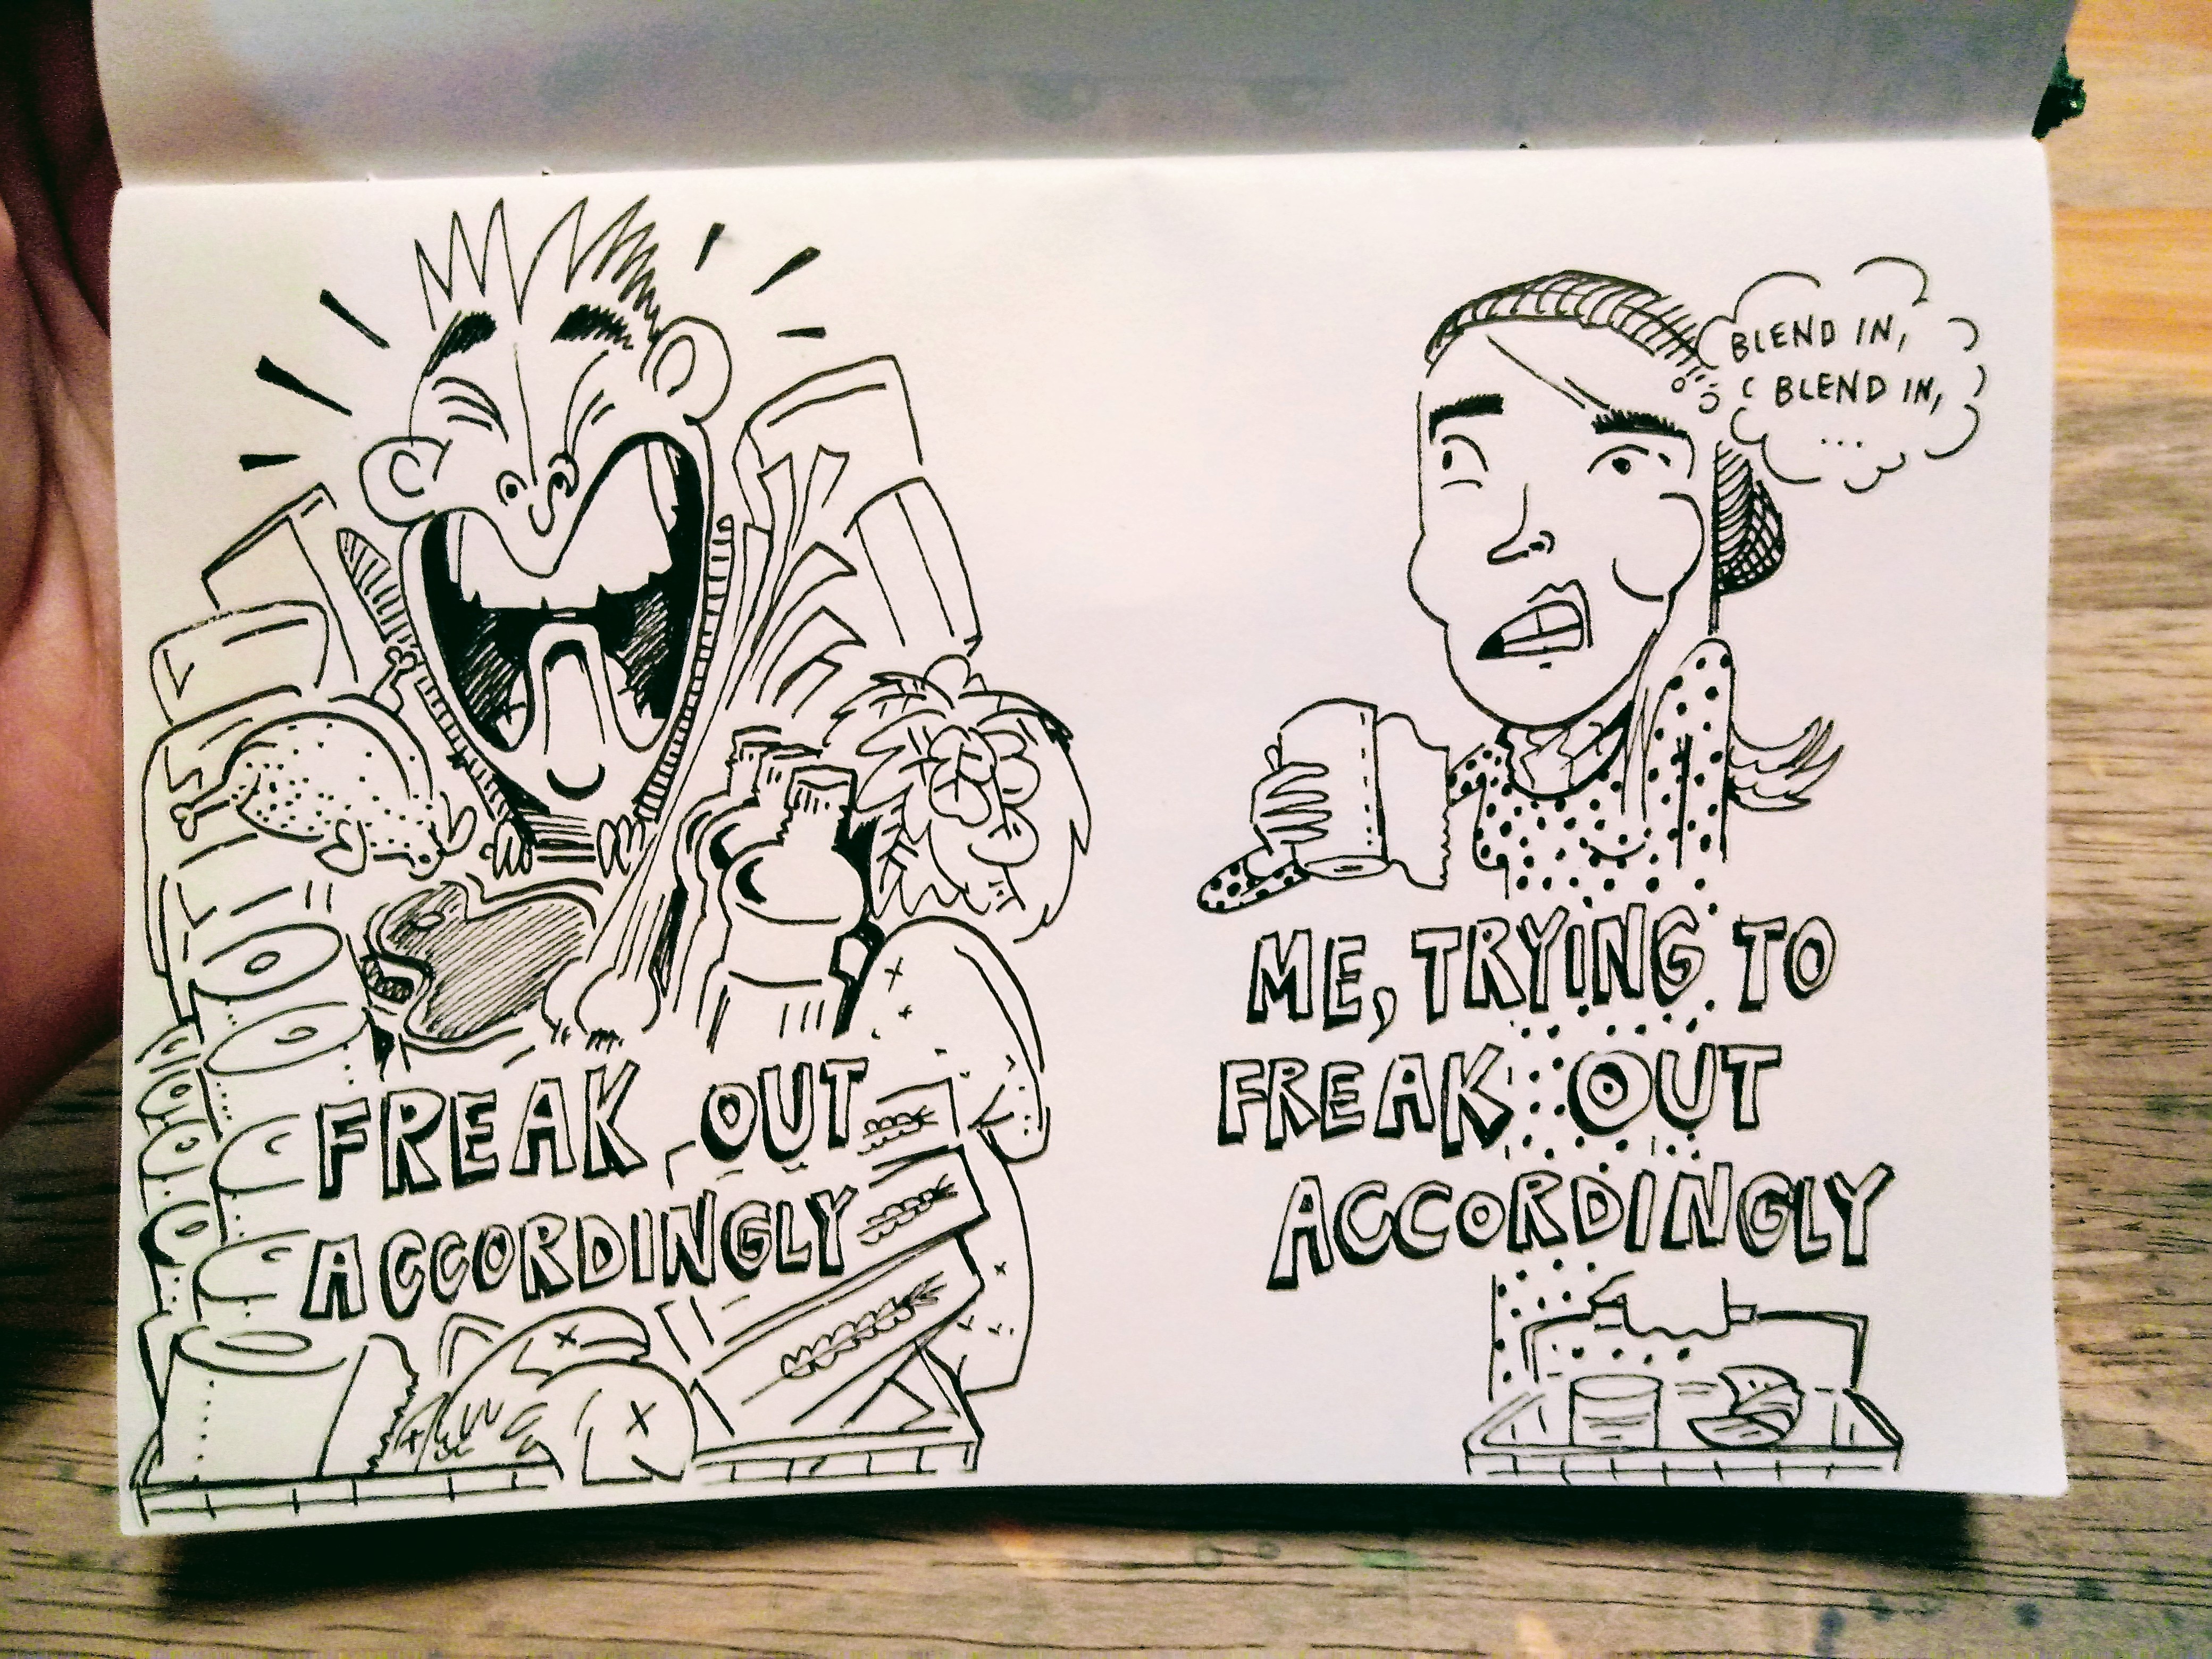 FREAK OUT
ACCORDINGLY
BLEND IN,
BLEND IN,
...
ME, TRYING TO
FREAK OUT
ACCORDINGLY